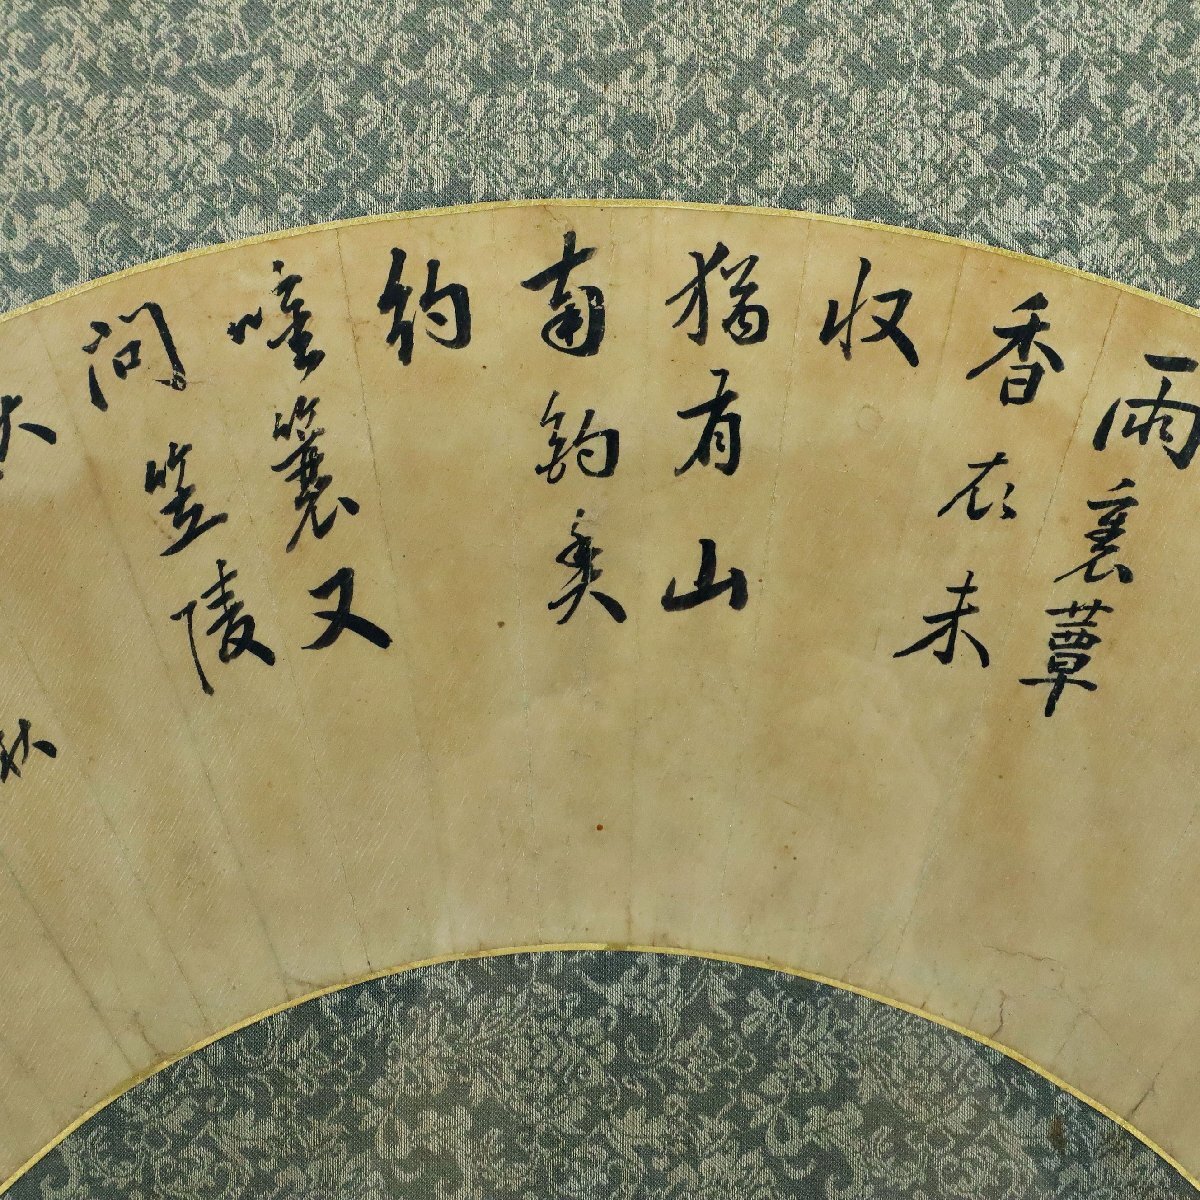 雨裏蕈
香衣未
収
猶有山
南釣叟
約
簑又
問笠陵